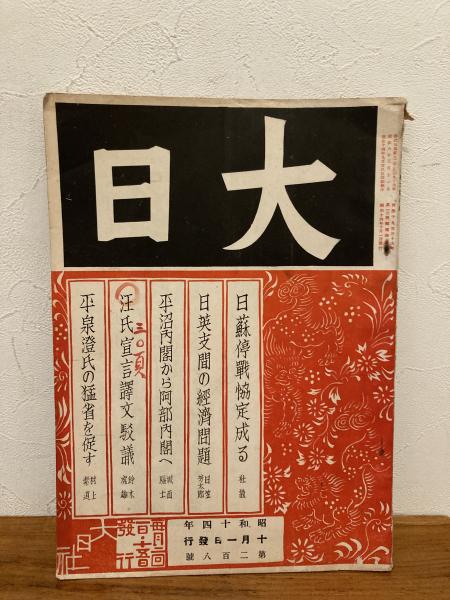 大日
日蘇停戰協定成る 社説
日英支間の經濟問題 日笠芳太郎
平沼內閣から阿部內閣へ
汪氏宣言譯文駁議 鈴木
三〇頁
平泉澄氏の猛省を促す 村上素道
昭和十四年
十月一日發行
第二百八號
發行
大日社